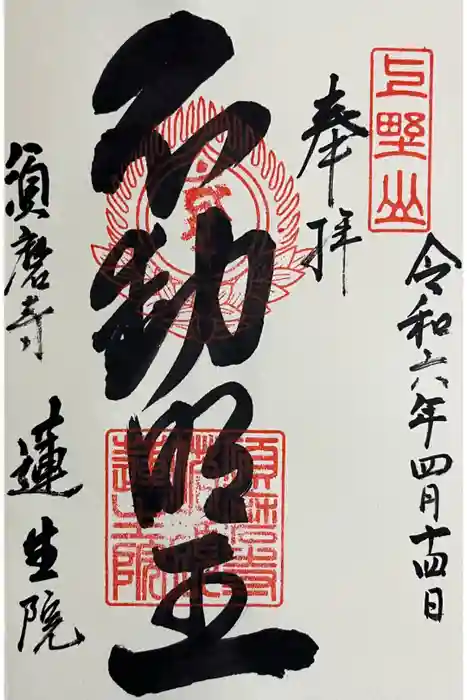 上野山
奉拝
令和六年四月十四日
不動明王
須磨寺 蓮生院